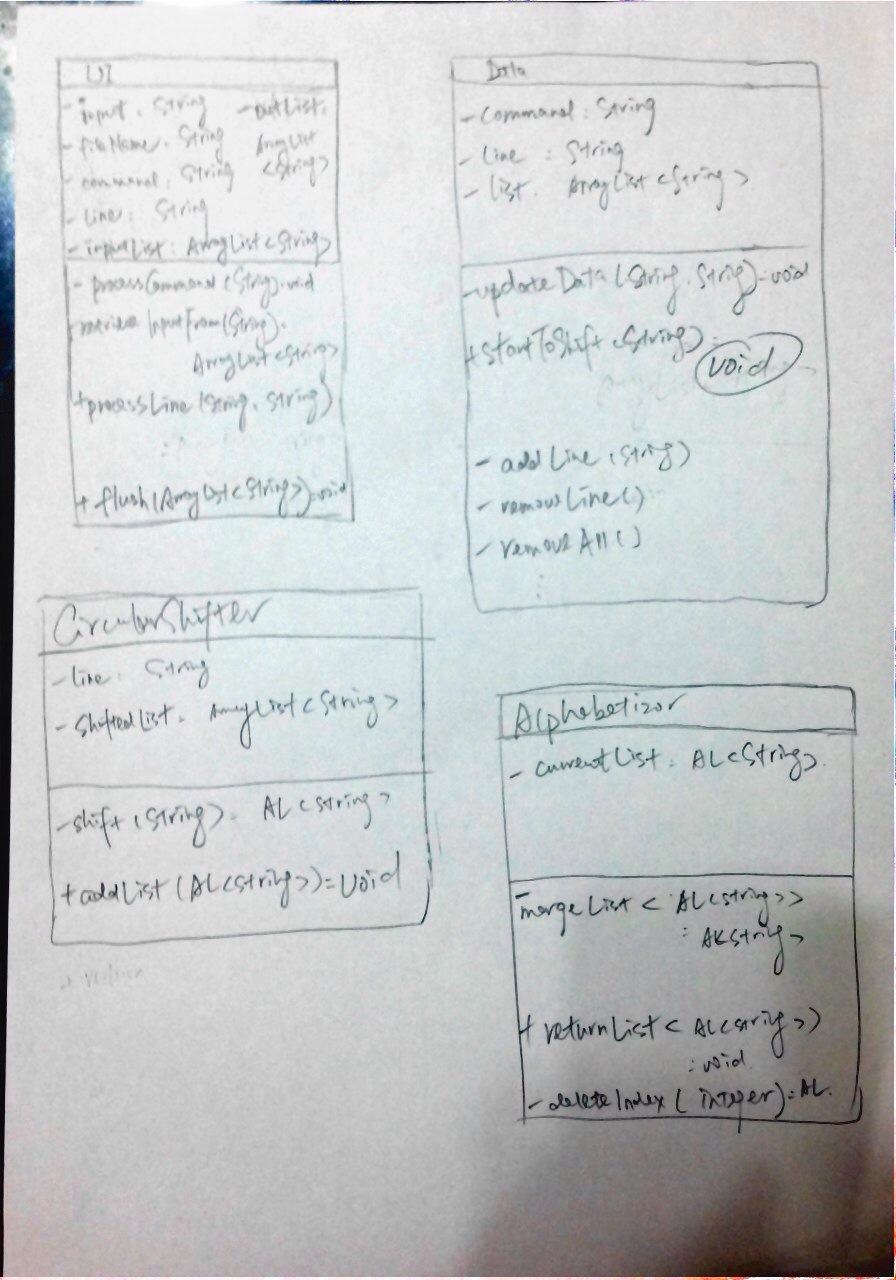 UI
- input : String
- fileName : String
- command : String
- Line : String
- inputList : ArrayList<String>
- outList :
ArrayList
<String>
- processCommand (String) : void
- retrieveInputFrom (String) :
ArrayList<String>
+ processLine (String, String)
+ flush (ArrayList<String>) : void
Data
- Command : String
- Line : String
- list : ArrayList<String>
- updateData (String, String) : void
+ startToShift (String) :
void
- addLine (String)
- removeLine ()
- removeAll ()
CircularShifter
- line : String
- ShiftedList : ArrayList<String>
- shift (String) : AL<String>
+ addList (AL<string>) = void
Alphabetizor
- currentList : AL<String>
- mergeList < AL<string>>
: AL<string>
+ returnList < AL<string>)
: void
- deleteIndex ( integer) : AL